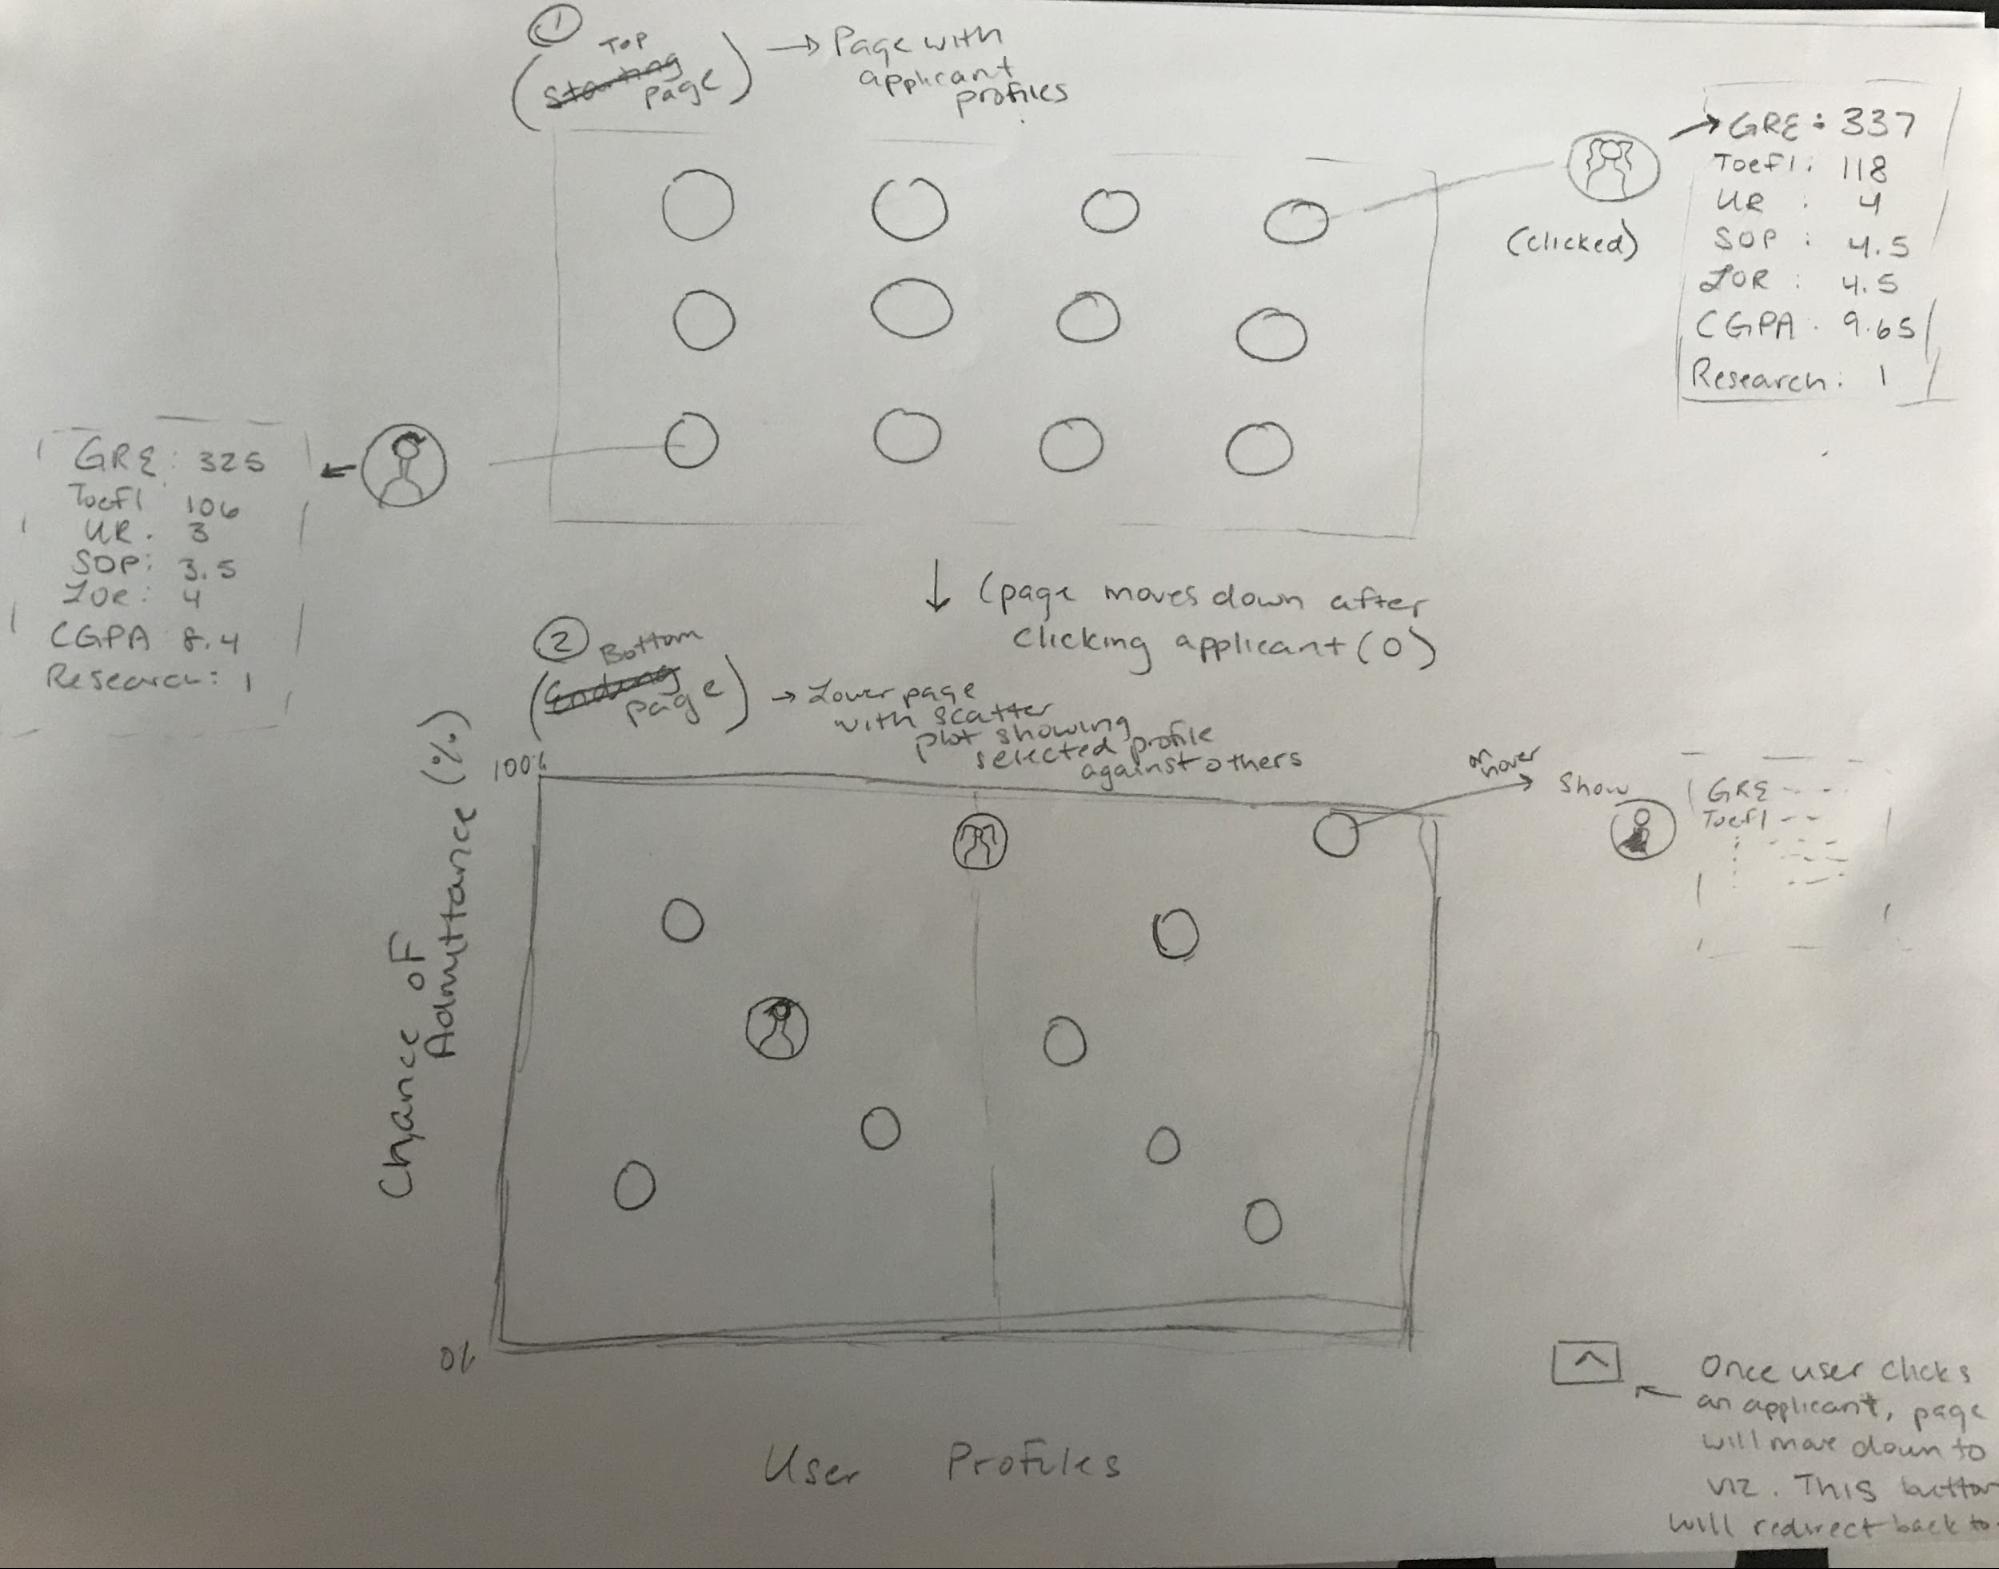 1
Top
(Starting page)
→ Page with
applicant
profiles
→ GRE: 337
Toefl: 118
UR : 4
SOP : 4.5
LOR : 4.5
CGPA . 9.65
Research: 1
(clicked)
GRE: 325
Toefl 106
UR. 3
SOP: 3.5
LOR: 4
CGPA 8.4
Research: 1
↓ (page moves down after
clicking applicant (O)
2
Bottom
(Ending page)
→ Lower page
with scatter
plot showing
selected profile
against others
on hover
Show
GRE
Toefl
100%
Chance of
Admittance (%)
0%
User Profiles
Once user clicks
an applicant, page
will move down to
viz. This button
will redirect back to